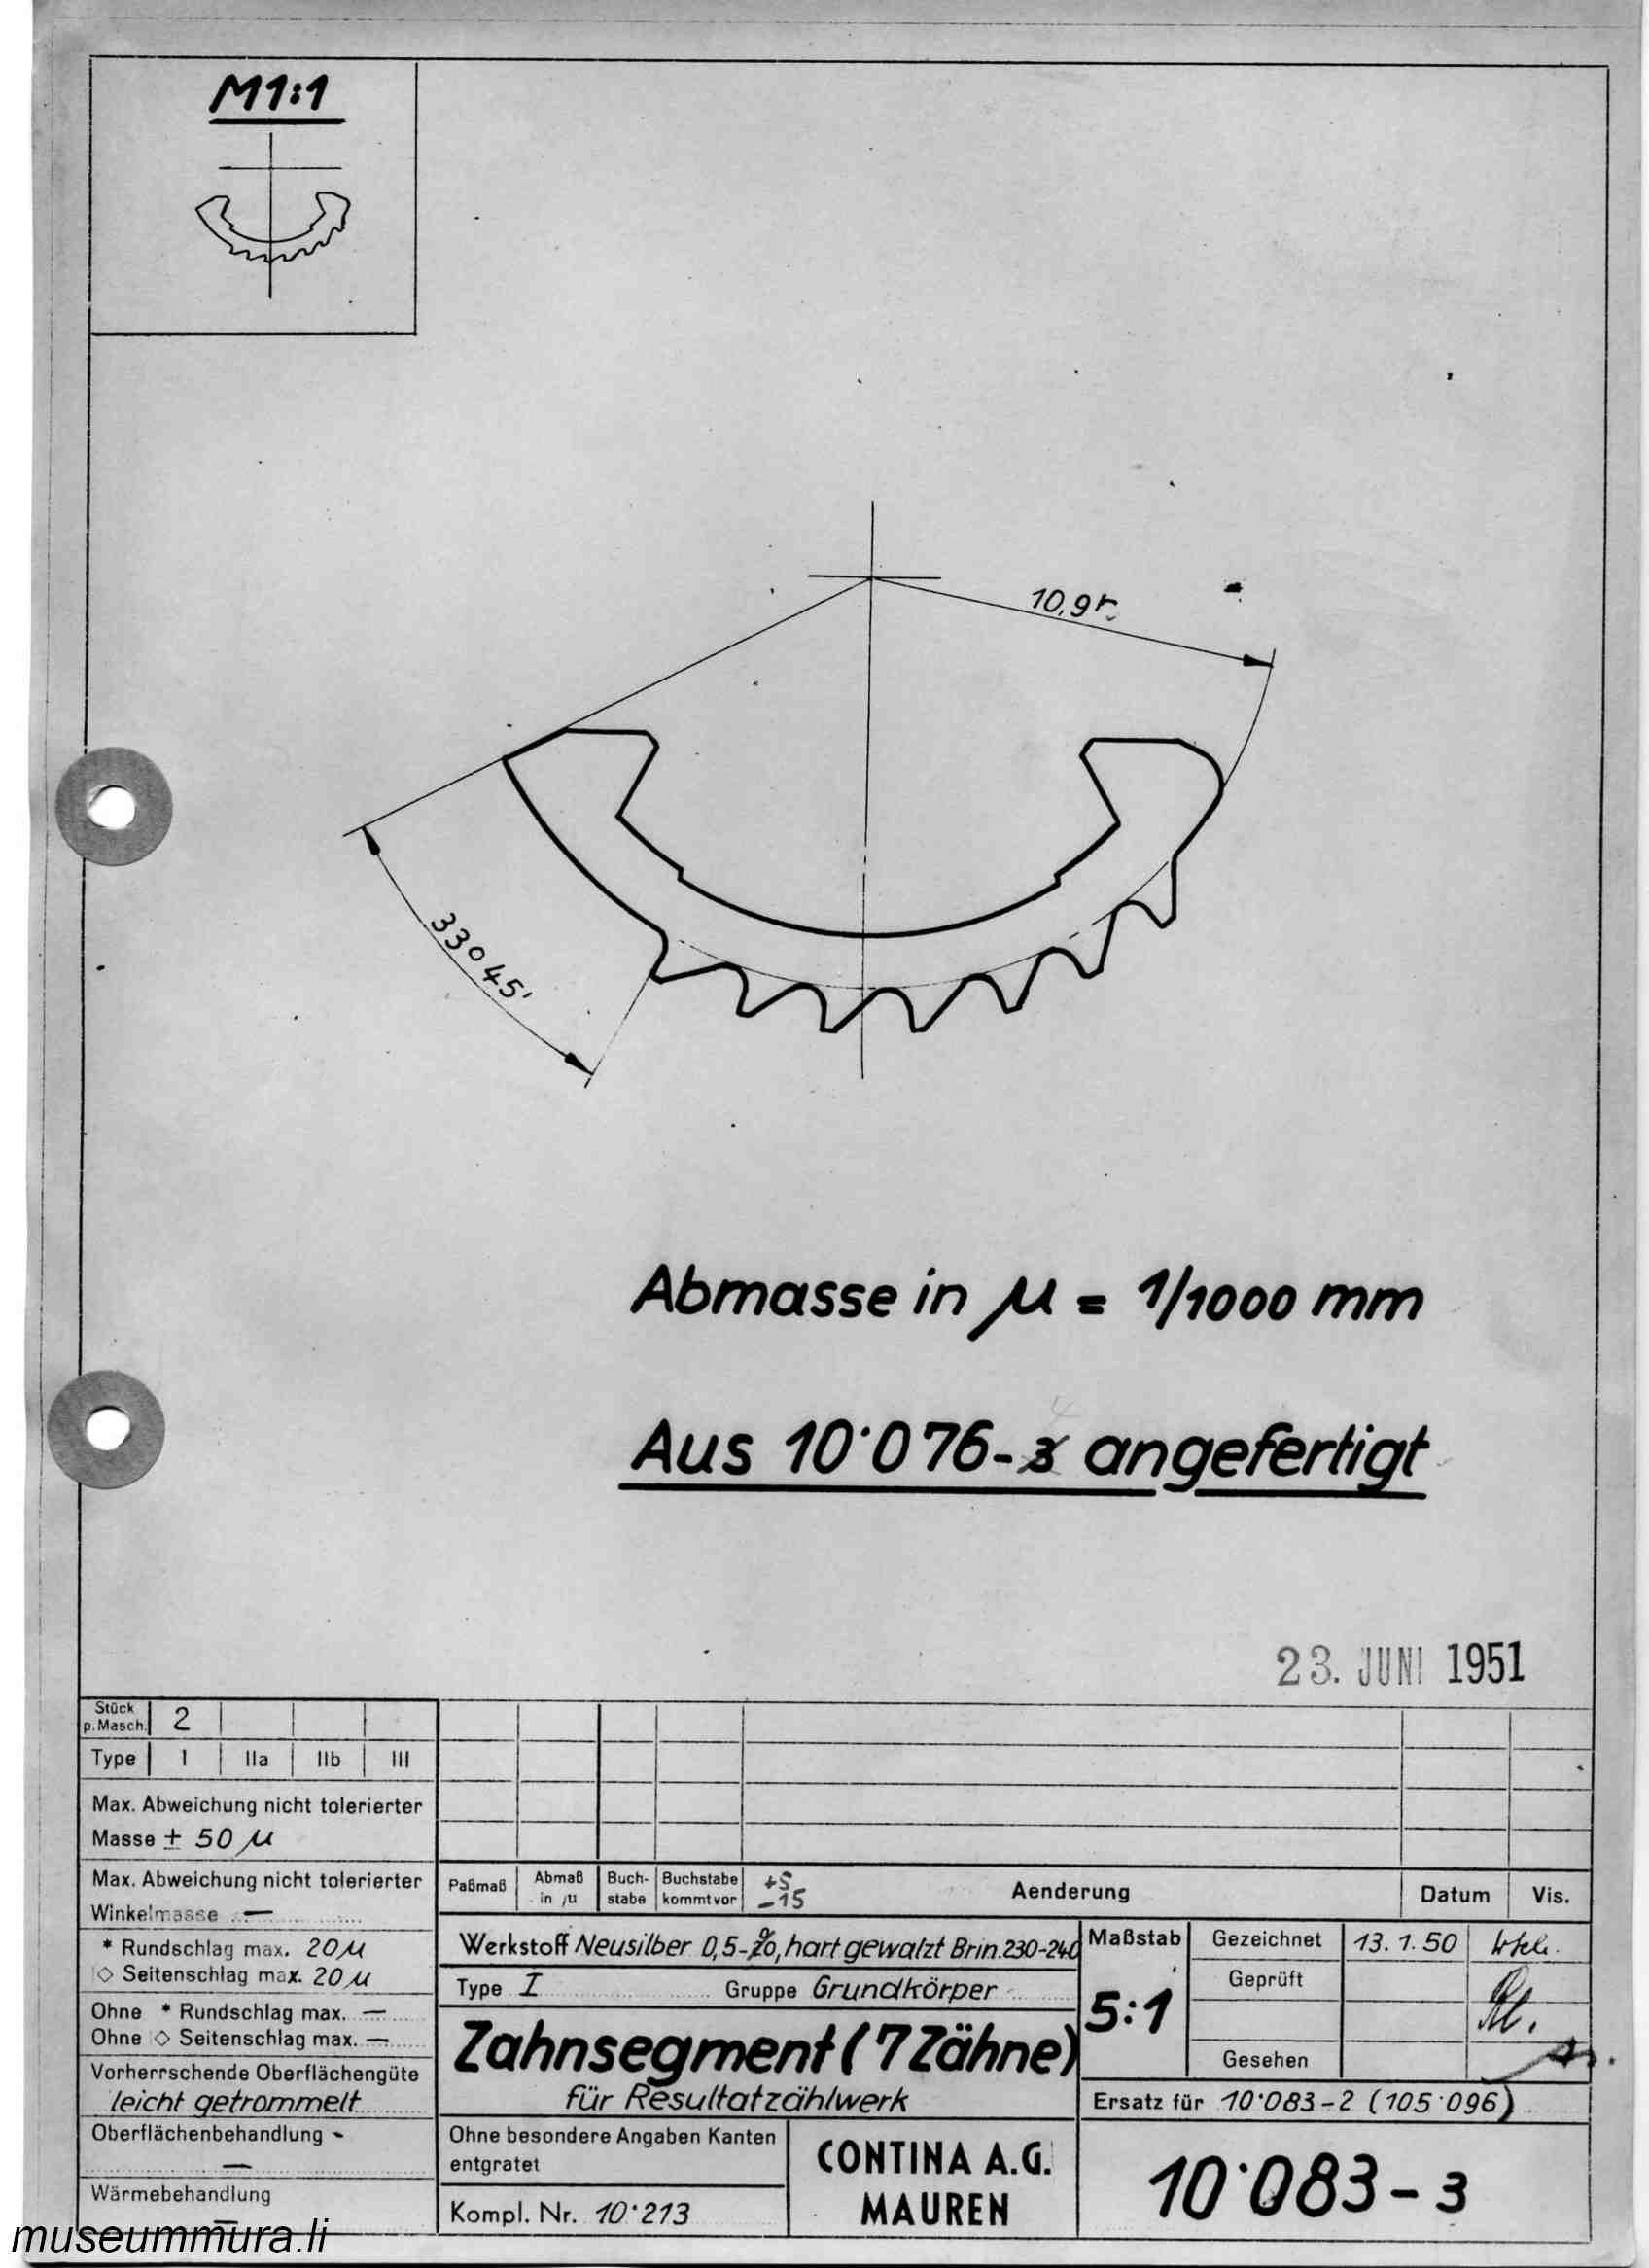 M1:1
10,9 r.
33° 45'
Abmasse in µ = 1/1000 mm
Aus 10·076-3 angefertigt
23. JUNI 1951
Stück
p. Masch. 2
Type I IIa IIb III
Max. Abweichung nicht tolerierter
Masse ± 50 µ
Max. Abweichung nicht tolerierter
Winkelmasse —
* Rundschlag max. 20 µ
◇ Seitenschlag max. 20 µ
Ohne * Rundschlag max. —
Ohne ◇ Seitenschlag max. —
Vorherrschende Oberflächengüte
leicht getrommelt
Oberflächenbehandlung -
—
Wärmebehandlung
—
Paßmaß
Abmaß
in µ
Buch-
stabe
Buchstabe
kommt vor
+5
-15
Aenderung
Datum
Vis.
Werkstoff Neusilber 0,5-, hart gewalzt Brin. 230-240
Type I Gruppe Grundkörper
Zahnsegment (7 Zähne)
für Resultatzählwerk
Ohne besondere Angaben Kanten
entgratet
Kompl. Nr. 10·213
CONTINA A.G.
MAUREN
Maßstab
5:1
Gezeichnet 13.1.50
Geprüft
Gesehen
Ersatz für 10·083-2 (105·096)
10·083-3
museummura.li